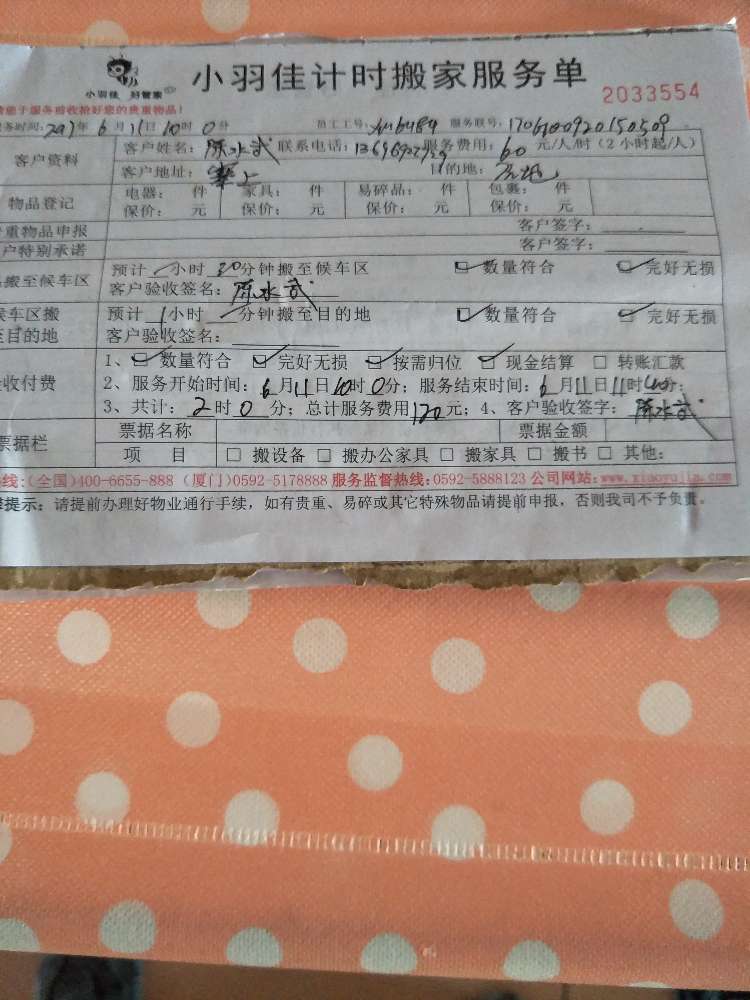 小羽佳 好管家
小羽佳计时搬家服务单
2033554
请您于服务前收拾好您的贵重物品!
务时间: 年 6 月 11 日 10 时 0 分 员工工号: 服务联号: 1706100920150509
客户资料
客户姓名: 陈水武 联系电话: 服务费用: 60 元/人/时 (2小时起/人)
客户地址: 目的地:
物品登记
电器: 件 家具: 件 易碎品: 件 包裹: 件
保价: 元 保价: 元 保价: 元 保价: 元
重物品申报 客户签字:
户特别承诺 客户签字:
搬至候车区
预计 小时 30 分钟搬至候车区 ☑ 数量符合 ☑ 完好无损
客户验收签名: 陈水武
车区搬
至目的地
预计 1 小时 分钟搬至目的地 ☑ 数量符合 ☑ 完好无损
客户验收签名:
收付费
1、☑ 数量符合 ☑ 完好无损 ☑ 按需归位 ☑ 现金结算 □ 转账汇款
2、服务开始时间: 6 月 11 日 10 时 0 分; 服务结束时间: 6 月 11 日 11 时 分;
3、共计: 2 时 0 分; 总计服务费用 120 元; 4、客户验收签字: 陈水武
票据栏
票据名称 票据金额
项 目 □ 搬设备 □ 搬办公家具 □ 搬家具 □ 搬书 □ 其他:
线:(全国)400-6655-888 (厦门)0592-5178888 服务监督热线:0592-5888123 公司网站:www.xiaoyujia.com
提示: 请提前办理好物业通行手续, 如有贵重、易碎或其它特殊物品请提前申报, 否则我司不予负责。